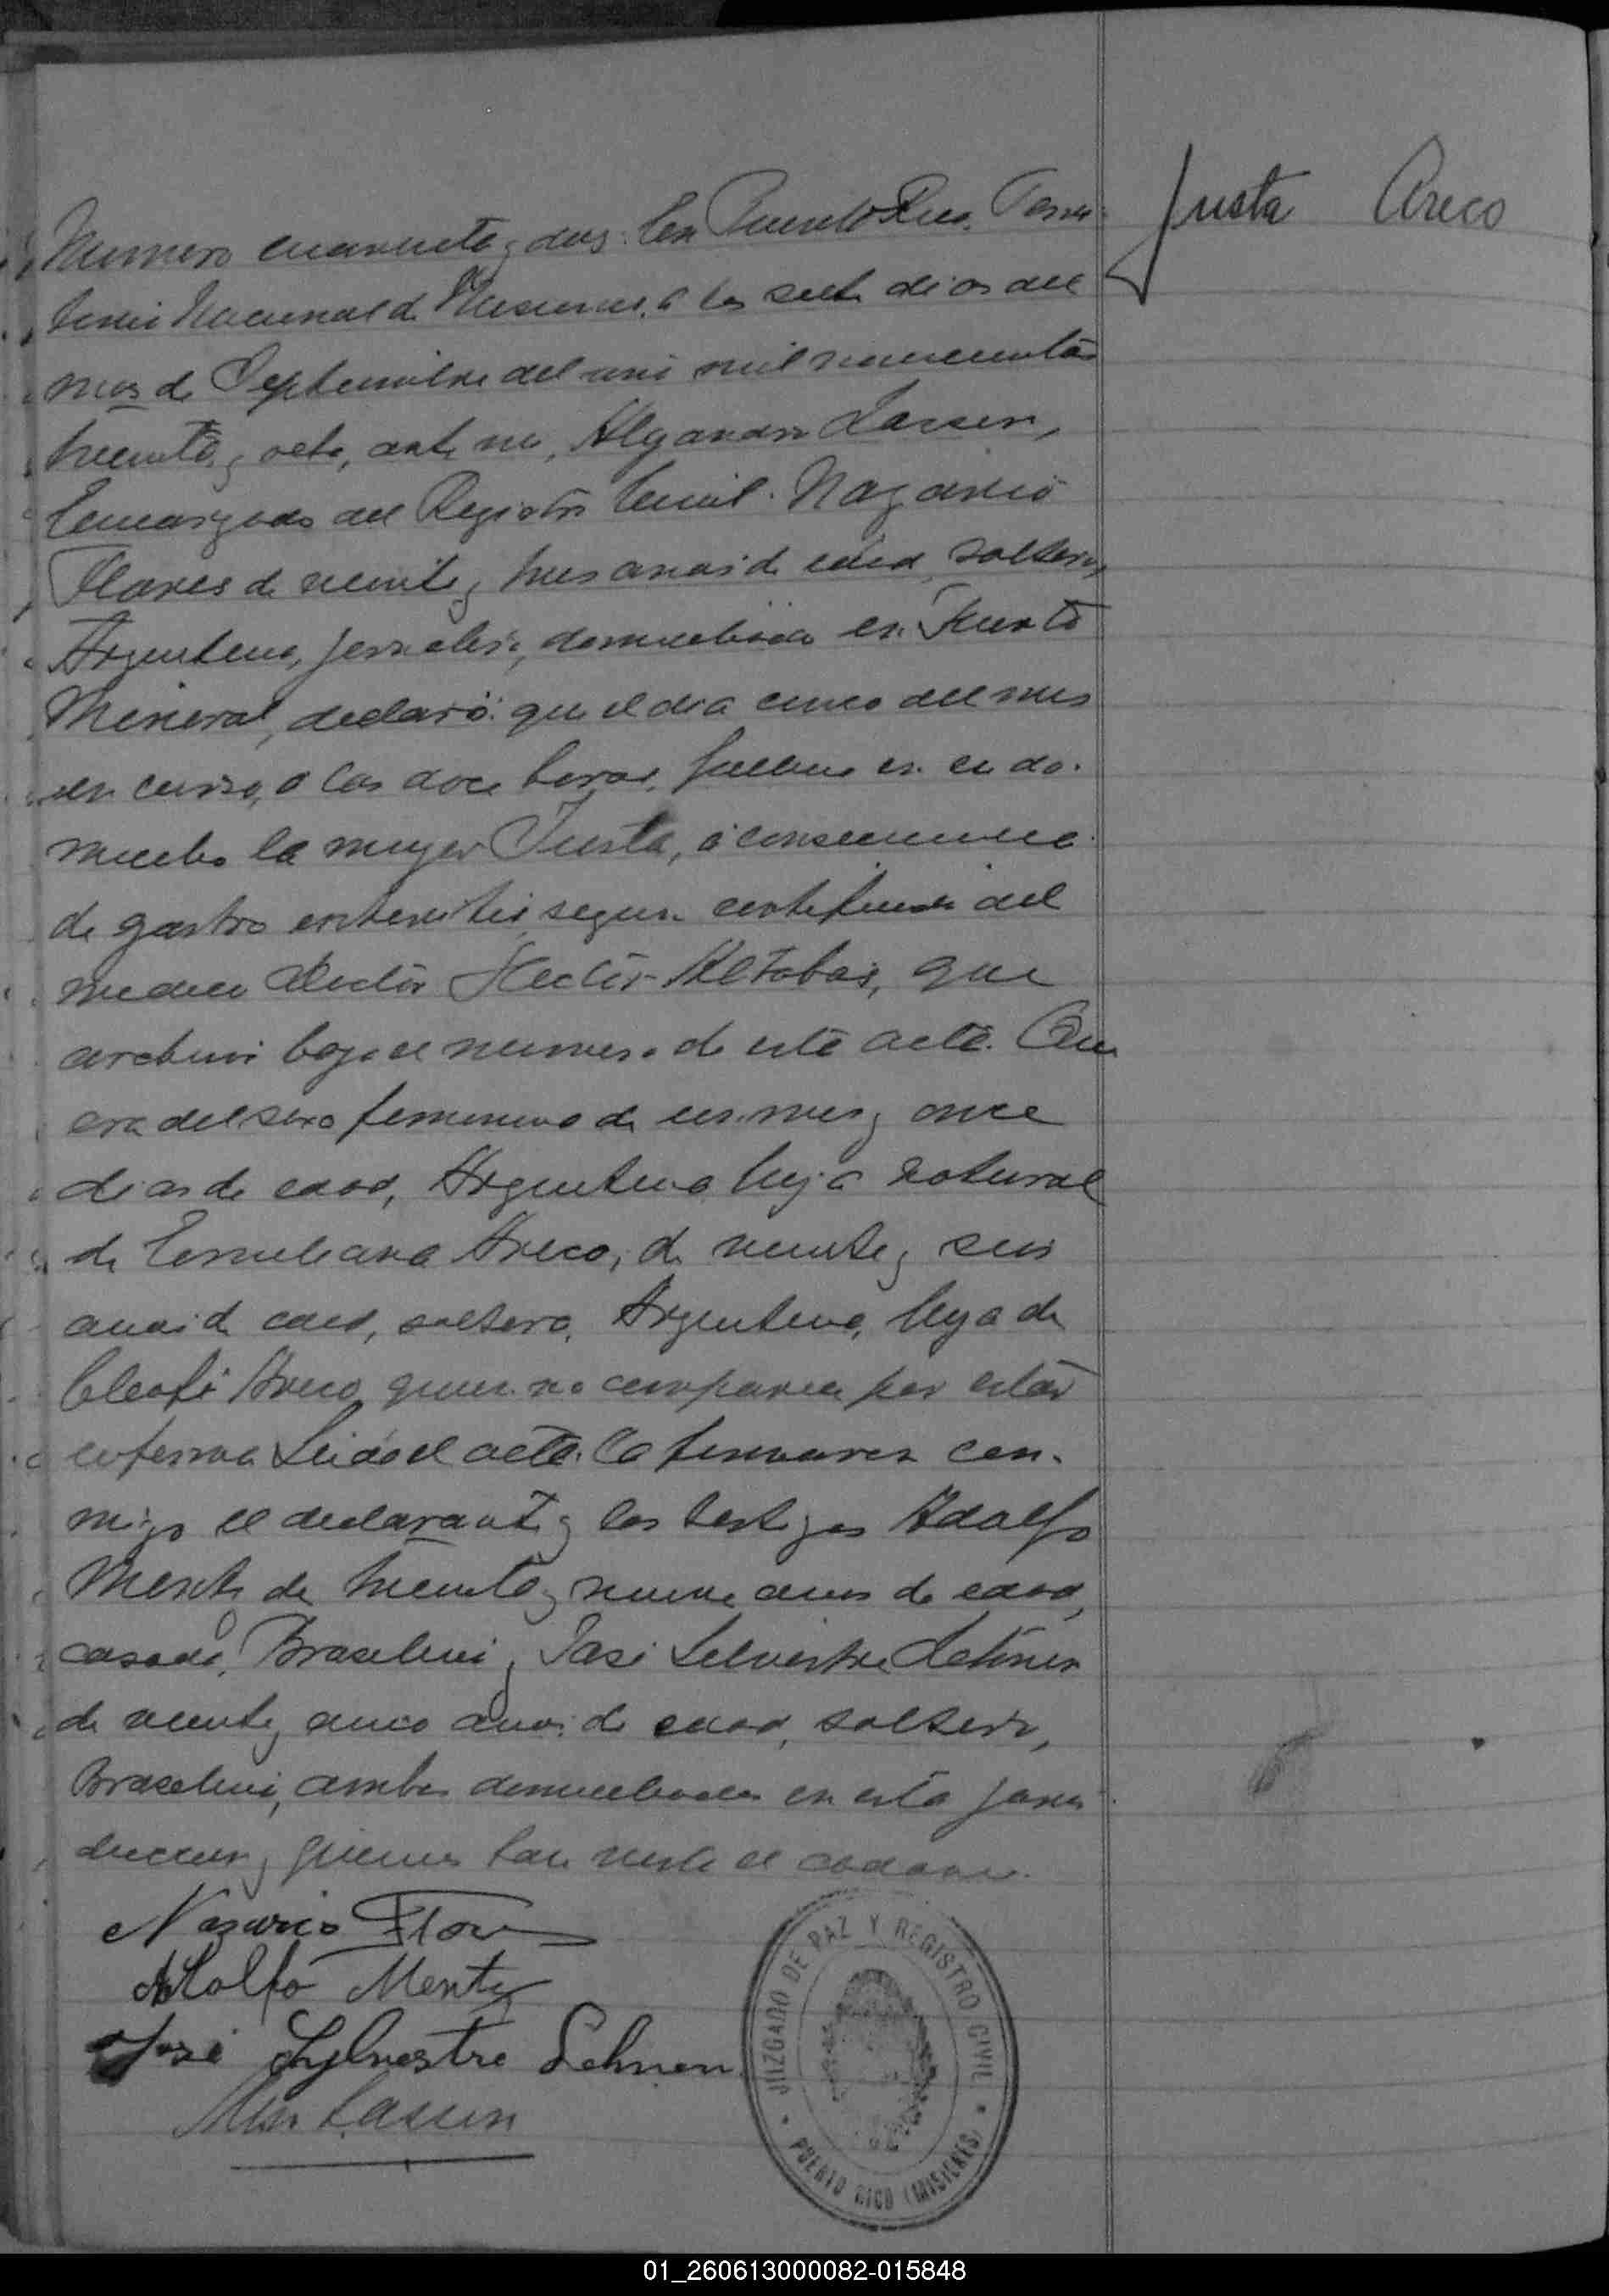 Justa Areco
Numero cuarenta y dos: En Puerto Rico, Terri-
torio Nacional de Misiones, a los siete dias del
mes de Septiembre del año mil novecientos
treinta y ocho, ante mi, Alejandro Lassen,
Encargado del Registro Civil. Nazario
Flores de veinte y tres años de edad, soltero,
Argentino, jornalero, domiciliado en Puerto
Mineral, declaró: que el dia cinco del mes
en curso, a las doce horas, fallecio en su do-
micilio la mujer Justa, a consecuencia
de gastro enteritis segun certificado del
medico doctor Hector Altabas, que
archivo bajo el numero de esta acta. Que
era del sexo femenino de un mes y once
dias de edad, Argentina hija natural
de Emiliana Areco, de veinte y seis
años de edad, soltera, Argentina, hija de
Cleofé Areco, quien no comparece por estar
enferma Leido el acta. La firmaron con-
migo el declarante y los testigos Adolfo
Mentz de treinta y nueve años de edad,
casado, Brasilero y José Silvestre Lehnen
de veinte y cinco años de edad, soltero,
Brasilero, ambos domiciliados en esta juris
diccion y quienes han visto el cadaver.
Nazario Flores
Adolfo Mentz
José Sylvestre Lehnen
Lassen
JUZGADO DE PAZ Y REGISTRO CIVIL
PUERTO RICO (MISIONES)
01_260613000082-015848